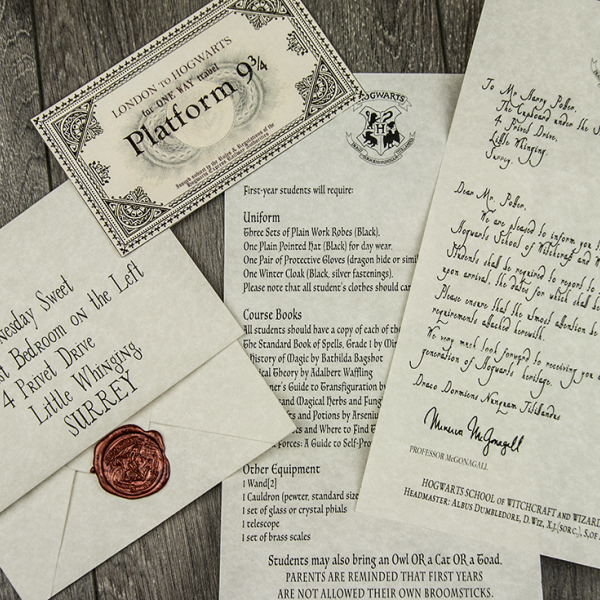 LONDON to HOGWARTS
for ONE WAY travel
Platform 9¾
HOGWARTS
First-year students will require:
Uniform
Three Sets of Plain Work Robes (Black).
One Plain Pointed Hat (Black) for day wear.
One Pair of Protective Gloves (dragon hide or simil
One Winter Cloak (Black, silver fastenings).
Please note that all student's clothes should car
Course Books
All students should have a copy of each of th
The Standard Book of Spells, Grade 1 by Mir
History of Magic by Bathilda Bagshot
ical Theory by Adalbert Waffling
ner's Guide to Transfiguration by
and Magical Herbs and Fung
ts and Potions by Arseniu
ts and Where to Find T
Forces: A Guide to Self-Pro
Other Equipment
1 Wand[2]
1 Cauldron (pewter, standard size
1 set of glass or crystal phials
1 telescope
1 set of brass scales
Students may also bring an Owl OR a Cat OR a Toad.
PARENTS ARE REMINDED THAT FIRST YEARS
ARE NOT ALLOWED THEIR OWN BROOMSTICKS.
nesday Sweet
st Bedroom on the Left
4 Privet Drive
Little Whinging
SURREY
To Mr Harry Potter,
The Cupboard under the S
4 Privet Drive,
Little Whinging,
Surrey.
Dear Mr. Potter,
We are pleased to inform you
Hogwarts School of Witchcraft and W
Students shall be required to report to
upon arrival, the dates for which shall be
Please ensure that the utmost attention be
requirements attached herewith.
We very much look forward to receiving you
generation of Hogwarts heritage.
Draco Dormiens Nunquam Titillandus
Minerva McGonagall
PROFESSOR McGONAGALL
HOGWARTS SCHOOL OF WITCHCRAFT AND WIZARD
HEADMASTER: ALBUS DUMBLEDORE, D.WIZ, X.J.(SORC.), S.OF